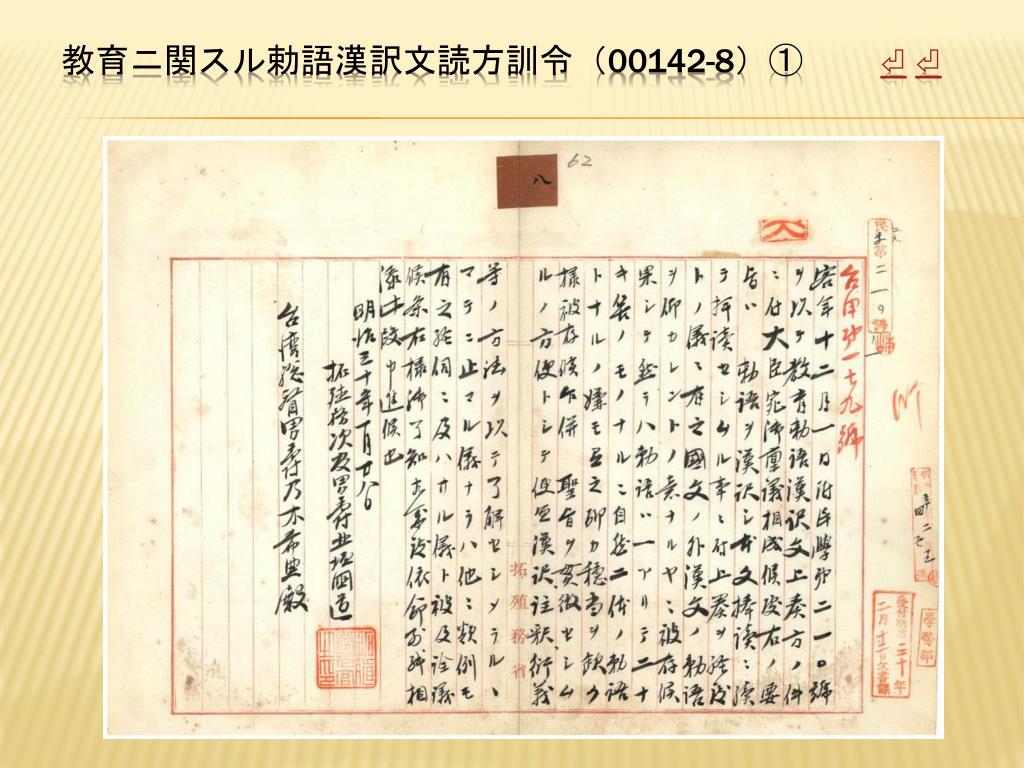 教育ニ関スル勅語漢訳文読方訓令（00142-8）①
八
62
台甲第一七九號
客年十二月一日附民學第二一〇號
ヲ以テ教育勅語漢訳文上奏方ノ件
ニ付大臣宛御稟議相成候處右ノ要
旨ハ勅語ヲ漢訳シ本文捧読ニ續
テ拝読セシムル事ニ付上奏ヲ経
ヲ仰カレントノ意ナルヤニ被存候
トノ儀ニ有之國文ノ外漢文ノ勅語
果シテ然ラハ勅語ハ一アリテ二ナ
キ筈ノモノナルニ自然二体ノ勅語
トナルノ嫌モ有之聊カ穏当ヲ欠ク
様被存候乍併聖旨ヲ貫徹セシム
ルノ方便トシテ便宜漢訳註釈衍義
等ノ方法ヲ以テ了解セシメラルヽ
マテニ止マル儀ナラハ他ニ類例モ
有之経伺ニ及ハサル儀ト被及詮議
候条右様御了知
依命此段相
添此段申進候也
明治三十年一月廿八日
拓殖務次官男爵北垣國道
台湾総督男爵乃木希典殿
拓殖務省
學務部